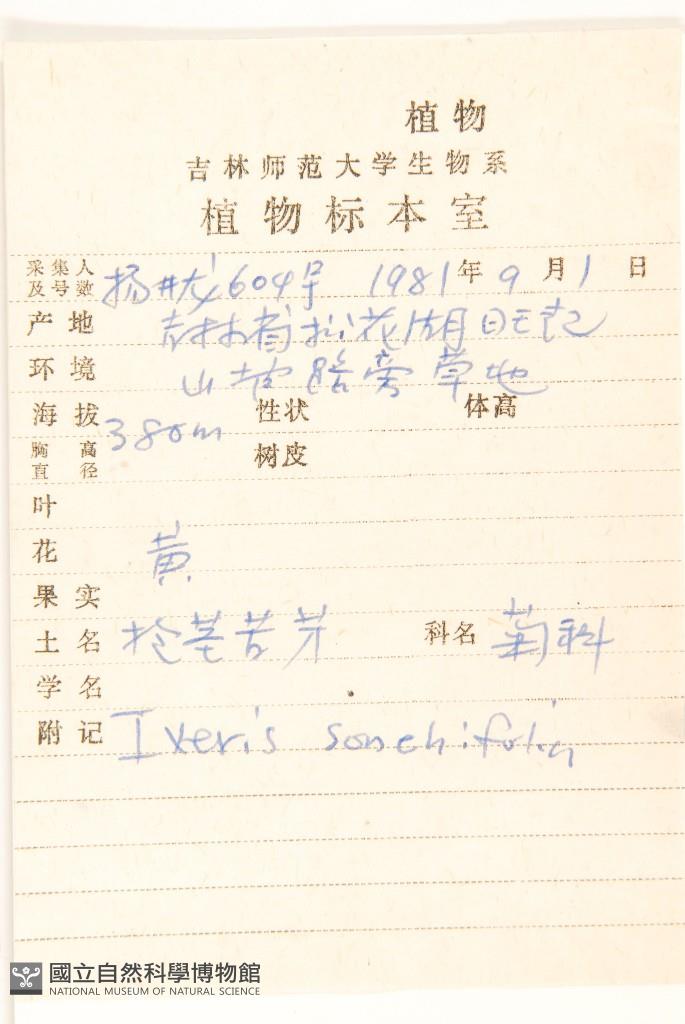 植物
吉林师范大学生物系
植物标本室
采集人及号数 扬 龙 604号 1981年9月1日
产地 吉林省松花湖
环境 山坡路旁草地
海拔 380m 性状 体高
胸高直径 树皮
叶
花 黄
果实
土名 抱茎苦芽 科名 菊科
学名
附记 Ixeris sonchifolia
國立自然科學博物館
NATIONAL MUSEUM OF NATURAL SCIENCE